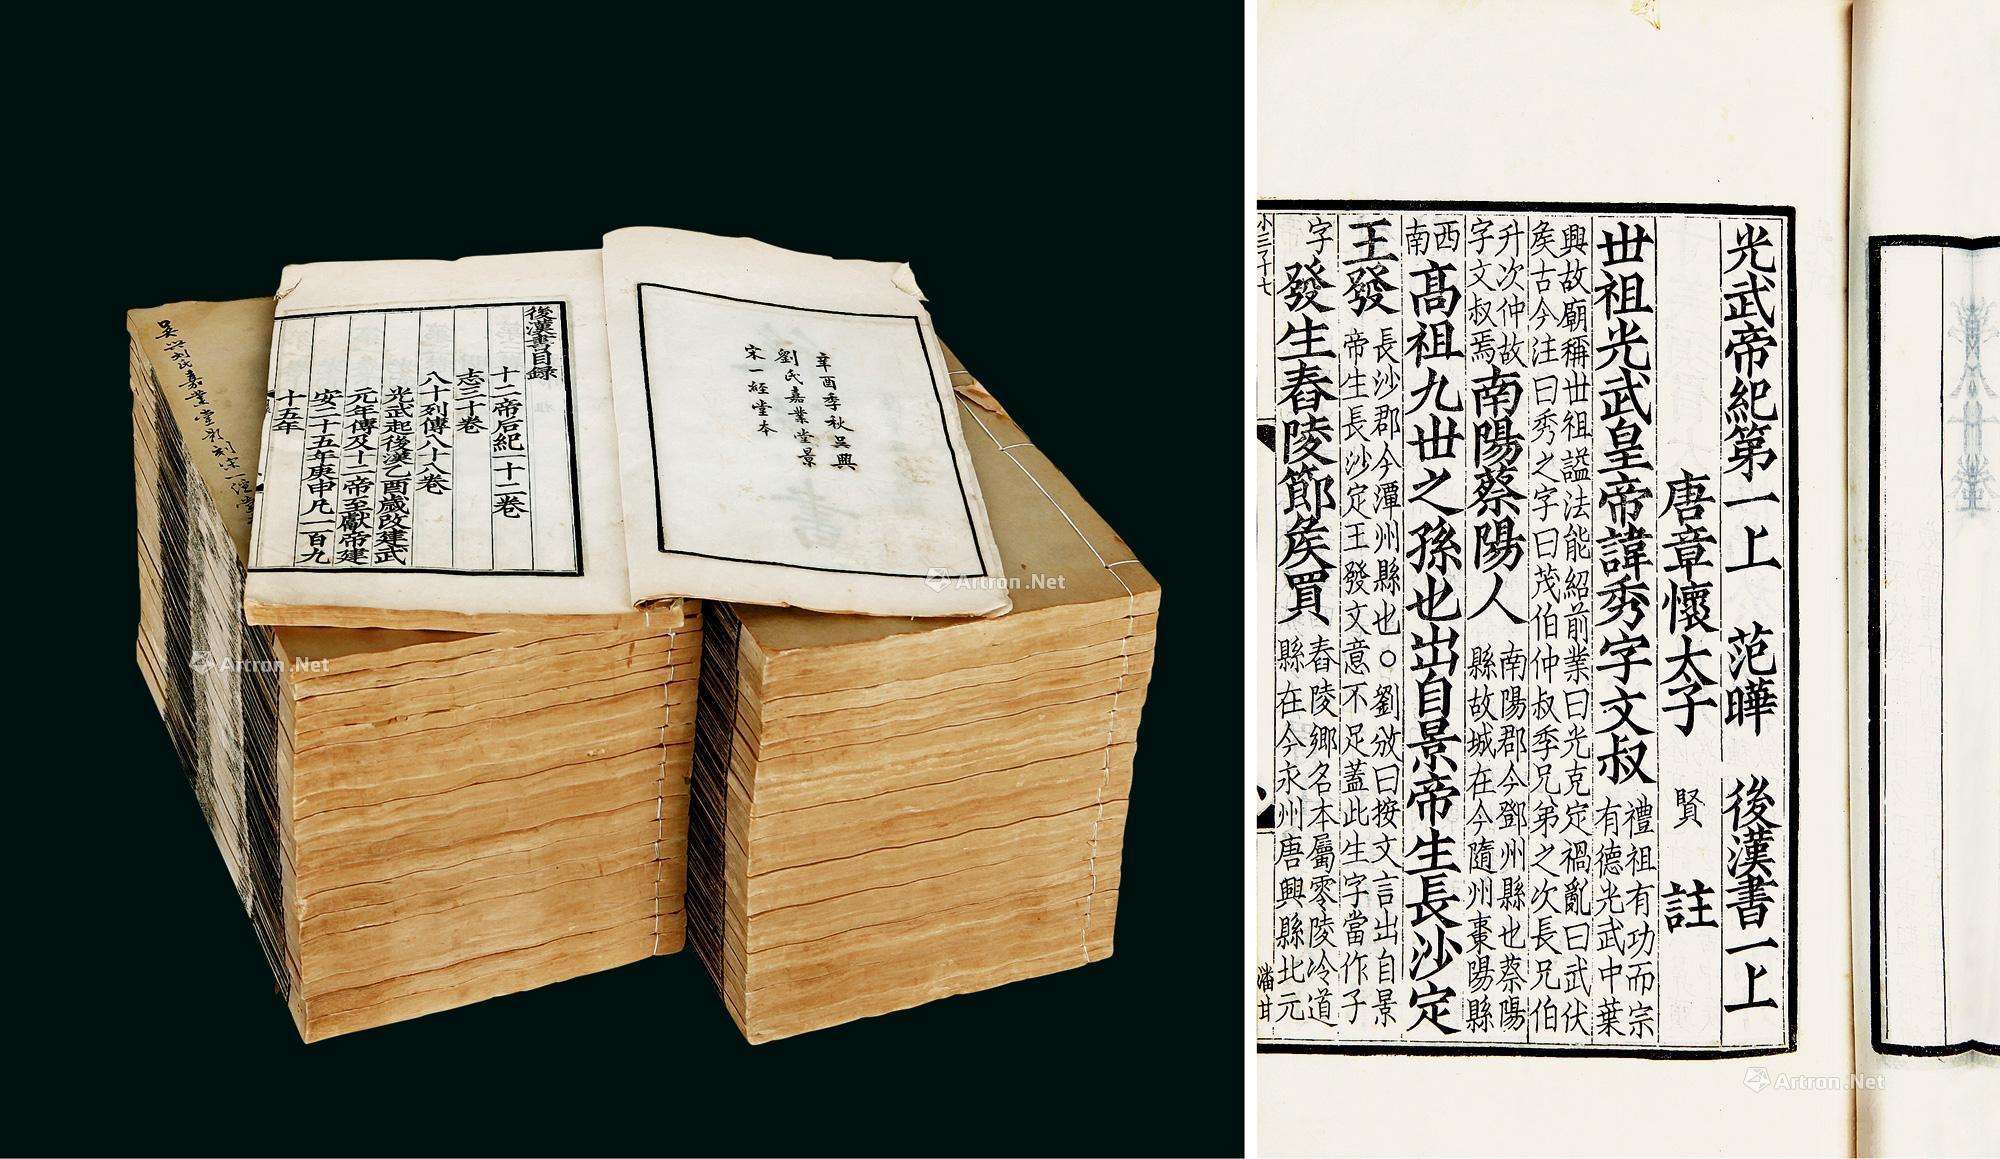 吳興劉氏嘉業堂影刻宋一經堂本
後漢書目録
十二帝后紀一十二卷
志三十卷
八十列傳八十八卷
光武起後漢乙酉歲改建武
元年傳及十二帝至獻帝建
安二十五年庚申凡一百九
十五年
辛酉季秋吳興
劉氏嘉業堂景
宋一經堂本
Artron.Net
Artron.Net
光武帝紀第一上 范曄 後漢書一上
唐章懷太子 賢 註
世祖光武皇帝諱秀字文叔 禮祖有功而宗有德光武中葉
興故廟稱世祖謚法能紹前業曰光克定禍亂曰武伏
矦古今注曰秀之字曰茂伯仲叔季兄弟之次長兄伯
升次仲故字文叔焉 南陽蔡陽人 南陽郡今鄧州縣也蔡陽縣故城在今隨州棗陽縣
西南 高祖九世之孫也出自景帝生長沙定
王發 長沙郡今潭州縣也○劉攽曰按文言出自景帝生長沙定王發文意不足蓋此生字當作子
字 發生舂陵節矦買 舂陵鄉名本屬零陵冷道縣在今永州唐興縣北元
小三十七
潘甘
Artron.Net